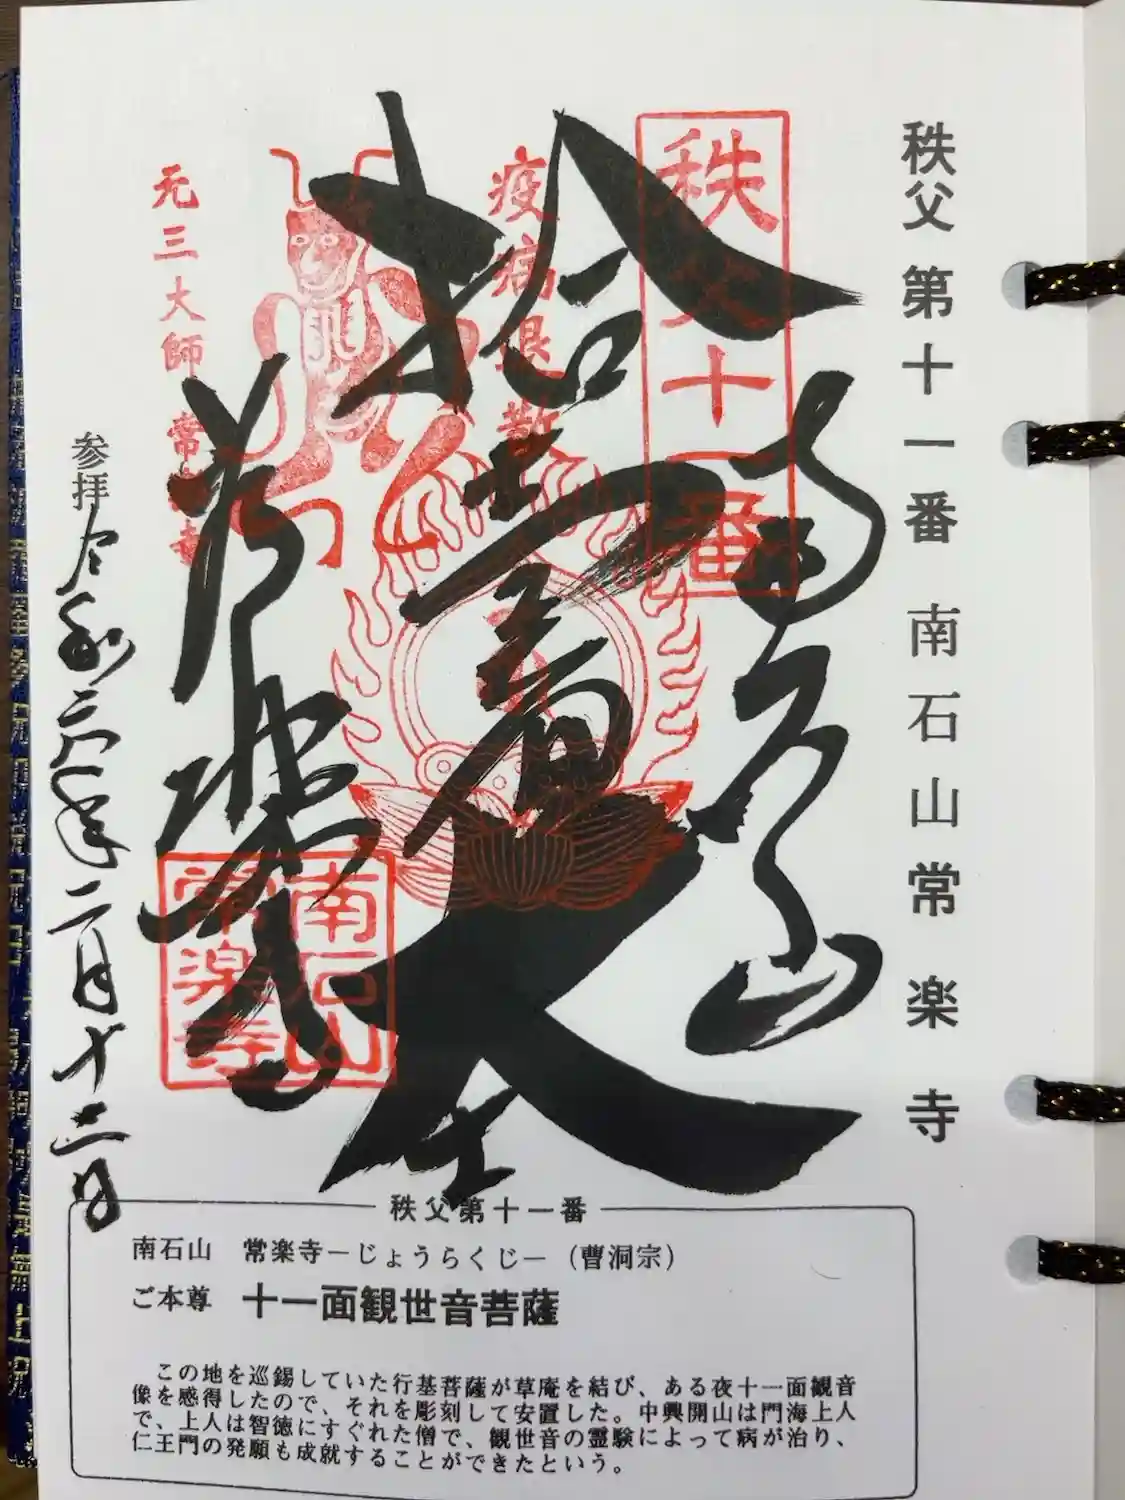 秩父第十一番 南石山常楽寺
秩父十一番
疫病退散
元三大師 常楽寺
南石山
拾壹番
大
南石山
常楽寺
参拝 令和六年二月十二日
秩父第十一番
南石山 常楽寺ーじょうらくじー（曹洞宗）
ご本尊 十一面観世音菩薩
この地を巡錫していた行基菩薩が草庵を結び、ある夜十一面観音
像を感得したので、それを彫刻して安置した。中興開山は門海上人
で、上人は智徳にすぐれた僧で、観世音の霊験によって病が治り、
仁王門の発願も成就することができたという。